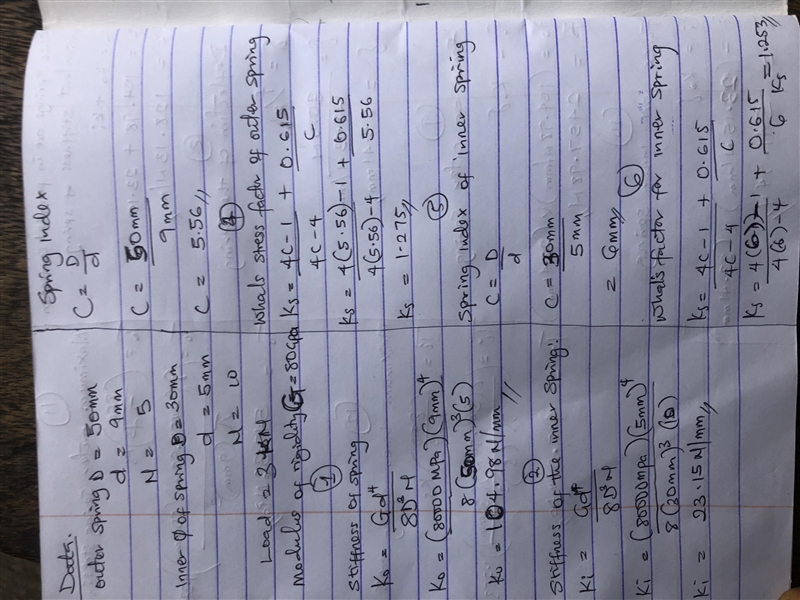 Data.
outer spring D = 50mm
d = 9mm
N = 5
Inner φ of spring D = 30mm
d = 5mm
N = 10
Load = 3kN
Modulus of rigidity G = 80Gpa
①
Stiffness of spring
Ko = Gd⁴
8D³N
Ko = (80000MPa)(9mm)⁴
8(50mm)³(5)
Ko = 104.98N/mm
②
Stiffness of the inner spring:
Ki = Gd⁴
8D³N
Ki = (80000mpa)(5mm)⁴
8(30mm)³(10)
Ki = 23.15N/mm
Spring index
C = D
d
C = 50mm
9mm
C = 5.56
④
Whals stress factor of outer spring
Ks = 4C-1 + 0.615
4C-4 C
Ks = 4(5.56)-1 + 0.615
4(5.56)-4 5.56
Ks = 1.275
⑤
Spring index of inner spring
C = D
d
C = 30mm
5mm
= 6mm
⑥
whals factor for inner spring
Ks = 4C-1 + 0.615
4C-4 C
Ks = 4(6)-1 + 0.615
4(6)-4 6 Ks = 1.253